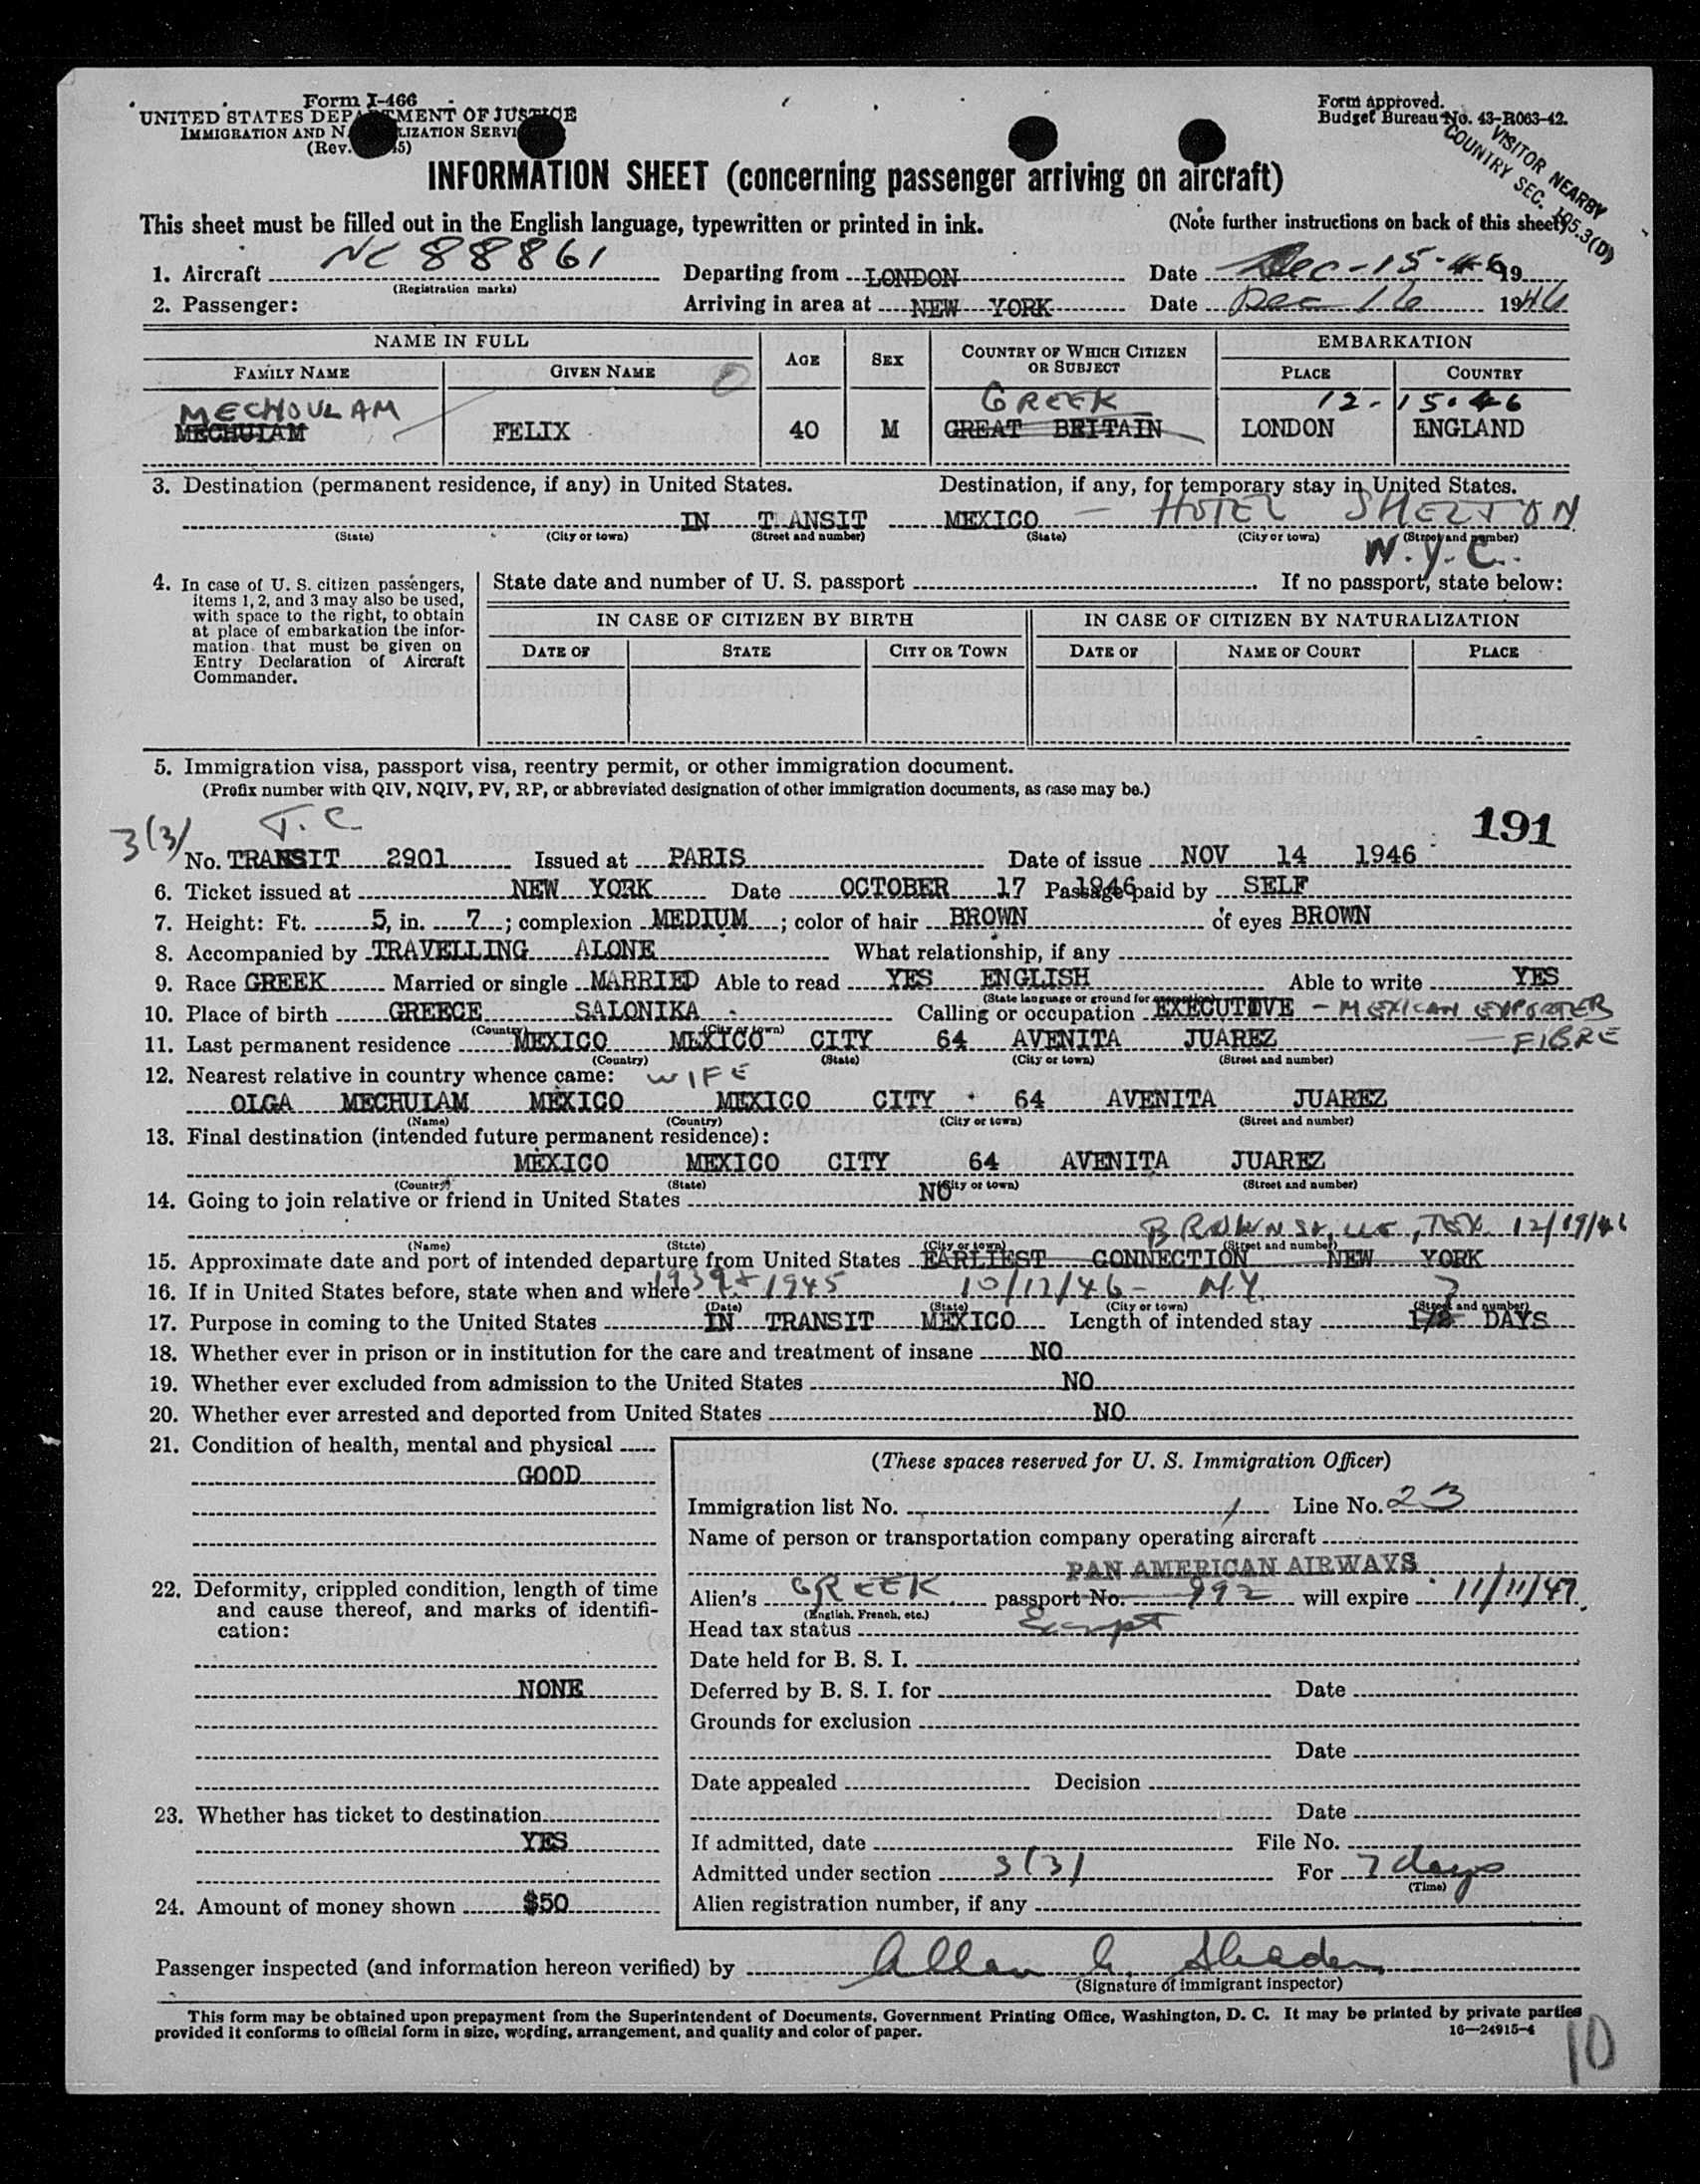 Form I-466
UNITED STATES DEPARTMENT OF JUSTICE
IMMIGRATION AND NATURALIZATION SERVICE
(Rev. 5)
Form approved.
Budget Bureau No. 43-R063-42.
VISITOR NEARBY
COUNTRY SEC. 105.3(D)
INFORMATION SHEET (concerning passenger arriving on aircraft)
This sheet must be filled out in the English language, typewritten or printed in ink. (Note further instructions on back of this sheet)
1. Aircraft NC 88861 Departing from LONDON Date Dec-15-46 19
(Registration marks)
2. Passenger: Arriving in area at NEW YORK Date Dec 16 1946
NAME IN FULL AGE SEX COUNTRY OF WHICH CITIZEN OR SUBJECT EMBARKATION
FAMILY NAME GIVEN NAME PLACE COUNTRY
MECHOULAM GREEK 12-15-46
MECHULAM FELIX 40 M GREAT BRITAIN LONDON ENGLAND
3. Destination (permanent residence, if any) in United States. Destination, if any, for temporary stay in United States.
IN T ANSIT MEXICO - HOTEL SHELTON
(State) (City or town) (Street and number) (State) (City or town) (Street and number)
N.Y.C.
4. In case of U. S. citizen passengers, items 1, 2, and 3 may also be used, with space to the right, to obtain at place of embarkation the information that must be given on Entry Declaration of Aircraft Commander.
State date and number of U. S. passport If no passport, state below:
IN CASE OF CITIZEN BY BIRTH IN CASE OF CITIZEN BY NATURALIZATION
DATE OF STATE CITY OR TOWN DATE OF NAME OF COURT PLACE
5. Immigration visa, passport visa, reentry permit, or other immigration document.
(Prefix number with QIV, NQIV, PV, RP, or abbreviated designation of other immigration documents, as case may be.)
3(3) T.C. 191
No. TRANSIT 2901 Issued at PARIS Date of issue NOV 14 1946
6. Ticket issued at NEW YORK Date OCTOBER 17 1946 Passage paid by SELF
7. Height: Ft. 5, in. 7; complexion MEDIUM; color of hair BROWN of eyes BROWN
8. Accompanied by TRAVELLING ALONE What relationship, if any
9. Race GREEK Married or single MARRIED Able to read YES ENGLISH Able to write YES
(State language or ground for exemption)
10. Place of birth GREECE SALONIKA Calling or occupation EXECUTIVE - MEXICAN EXPORTER
(Country) (City or town)
11. Last permanent residence MEXICO MEXICO CITY 64 AVENITA JUAREZ - FIBRE
(Country) (State) (City or town) (Street and number)
12. Nearest relative in country whence came: WIFE
OLGA MECHULAM MEXICO MEXICO CITY 64 AVENITA JUAREZ
(Name) (Country) (City or town) (Street and number)
13. Final destination (intended future permanent residence):
MEXICO MEXICO CITY 64 AVENITA JUAREZ
(Country) (State) (City or town) (Street and number)
14. Going to join relative or friend in United States NO
BROWNSVILLE, TEX. 12/19/46
(Name) (State) (City or town) (Street and number)
15. Approximate date and port of intended departure from United States EARLIEST CONNECTION NEW YORK
16. If in United States before, state when and where 1939 + 1945 10/17/46 - N.Y.
(Date) (State) (City or town) (Street and number)
7
17. Purpose in coming to the United States IN TRANSIT MEXICO Length of intended stay 1/2 DAYS
18. Whether ever in prison or in institution for the care and treatment of insane NO
19. Whether ever excluded from admission to the United States NO
20. Whether ever arrested and deported from United States NO
21. Condition of health, mental and physical
GOOD
22. Deformity, crippled condition, length of time and cause thereof, and marks of identification:
NONE
23. Whether has ticket to destination
YES
24. Amount of money shown $50
(These spaces reserved for U. S. Immigration Officer)
Immigration list No. 1 Line No. 23
Name of person or transportation company operating aircraft
PAN AMERICAN AIRWAYS
Alien's GREEK passport No. 992 will expire 11/11/47
(English, French, etc.)
Head tax status Exempt
Date held for B. S. I.
Deferred by B. S. I. for Date
Grounds for exclusion
Date
Date appealed Decision
Date
If admitted, date File No.
Admitted under section 3(3) For 7 days
(Time)
Alien registration number, if any
Passenger inspected (and information hereon verified) by Allan
(Signature of immigrant inspector)
This form may be obtained upon prepayment from the Superintendent of Documents, Government Printing Office, Washington, D. C. It may be printed by private parties
provided it conforms to official form in size, wording, arrangement, and quality and color of paper. 16—24915-4
10